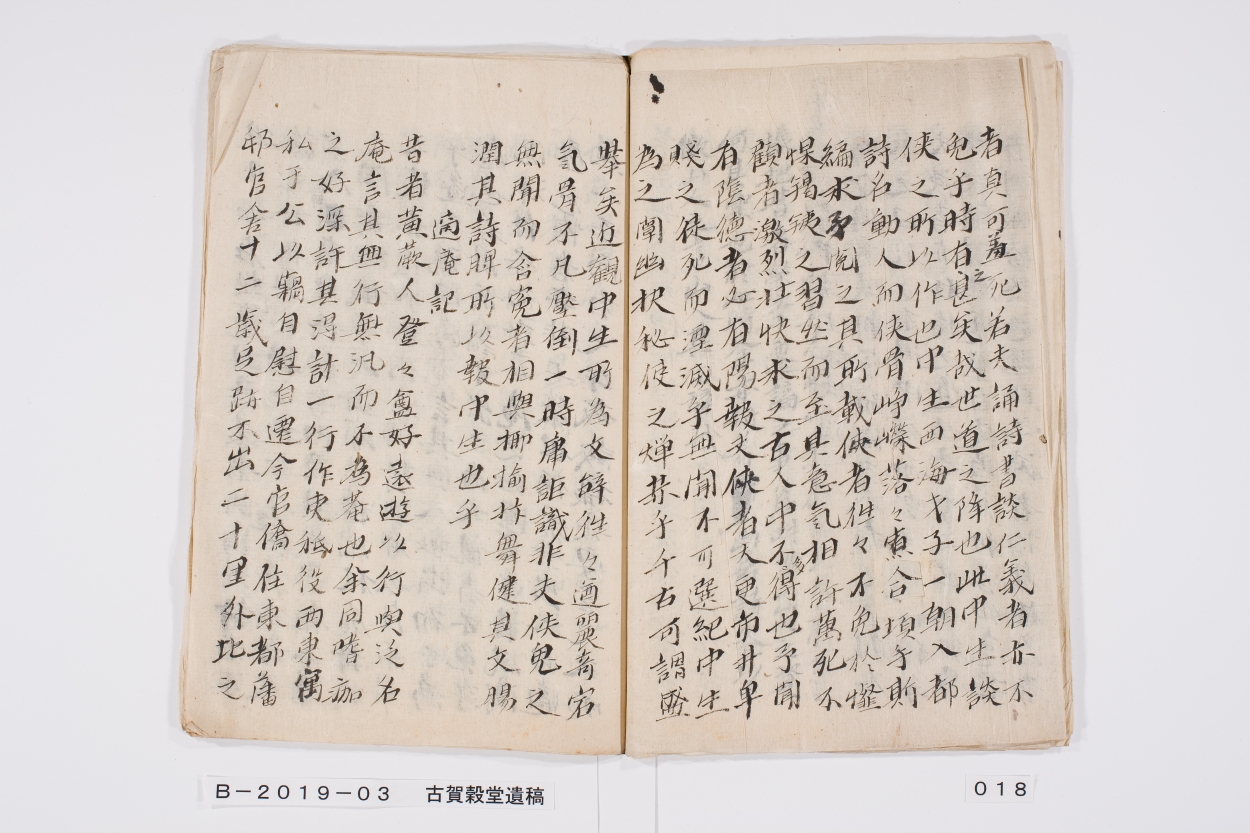 者真可畫死若夫誦詩書談仁義者亦不
免乎時有之是矣哉世道之降也此中生談
侠之所以作也中生西海才子一朝入都
詩名動人而侠骨崢嶸落々寡合項予斯
編求予閲之其所載侠者徃々不免於慓
悍獷猂之習然而至其急氣相許萬死不
顧者激烈壮快求之古人中不多得也予聞
有陰德者必有陽報丈侠者大更市井卑
賤之徒死而湮滅乎無聞不可選紀中生
為之闡幽抉秘使之燁燁乎千古可謂盛
舉矣近觀中生所為文辭徃々遒麗奇宕
氣骨不凡壓倒一時庸詎識非夫侠鬼之
無聞而含寃者相與揶揄抃舞健其文腸
潤其詩脾所以報中生也乎
適庵記
昔者黄蕨人登々盦好遠遊以行與泛名
庵言其無行無汎而不為菴也余同嗜痂
之好深許其得計一行作吏祗役西東寓
私于公以竊自慰自遷今官僑住東都藩
邸官舎十二歳足跡不出二十里外比之
B－2019－03　古賀穀堂遺稿
018